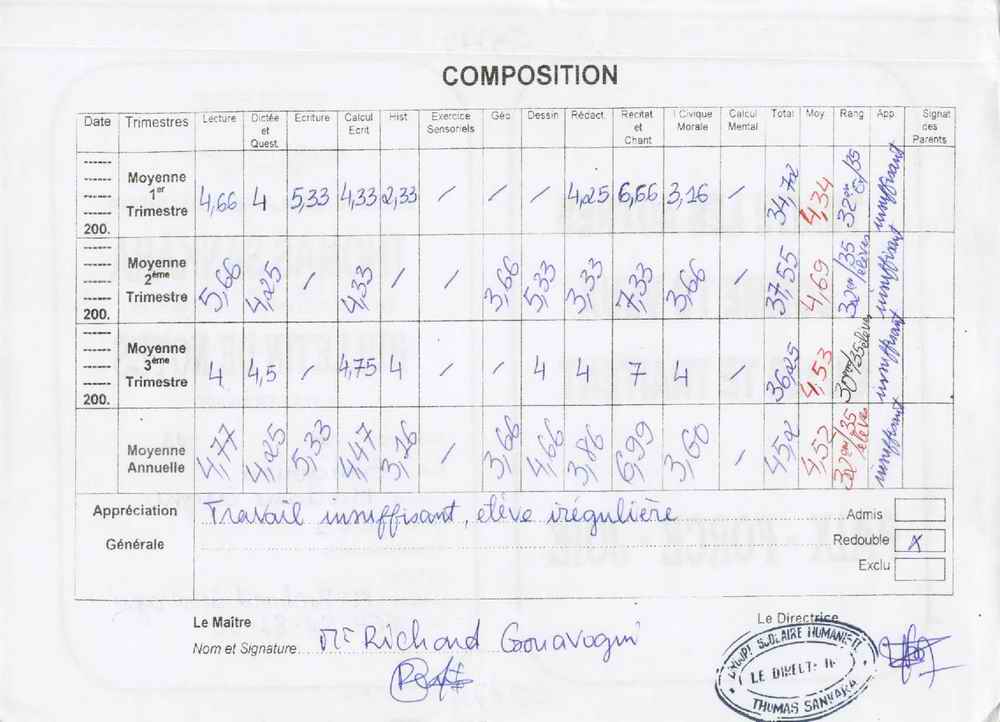 COMPOSITION
Date Trimestres Lecture Dictée et Quest. Ecriture Calcul Ecrit Hist Exercice Sensoriels Géo Dessin Rédact. Recitat et Chant I Civique Morale Calcul Mental Total Moy Rang App. Signat des Parents
200. Moyenne 1er Trimestre 4,66 4 5,33 4,33 2,33 / / / 4,25 6,66 3,16 / 34,72 4,34 32em e/35 insuffisant
200. Moyenne 2ème Trimestre 5,66 4,25 / 4,33 / / 3,66 5,33 3,33 7,33 3,66 / 37,55 4,69 32em/35 elèves insuffisant
200. Moyenne 3ème Trimestre 4 4,5 / 4,75 4 / / 4 4 7 4 / 36,25 4,53 30em/35 elèves insuffisant
Moyenne Annuelle 4,77 4,25 5,33 4,47 3,16 / 3,66 4,66 3,86 6,99 3,60 / 45,2 4,52 32em/35 elèves insuffisant
Appréciation Générale Travail insuffisant, elève irégulière
Admis
Redouble x
Exclu
Le Maître Le Directrice
Nom et Signature Mr Richard Gonavogui
GROUPE SCOLAIRE HUMANITE
LE DIRECT
THOMAS SANKARA